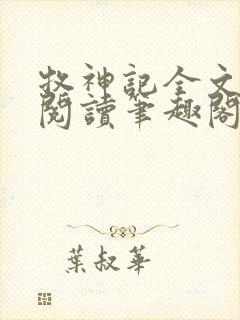 牧神記全文
閱讀筆趣閣
葉叔華